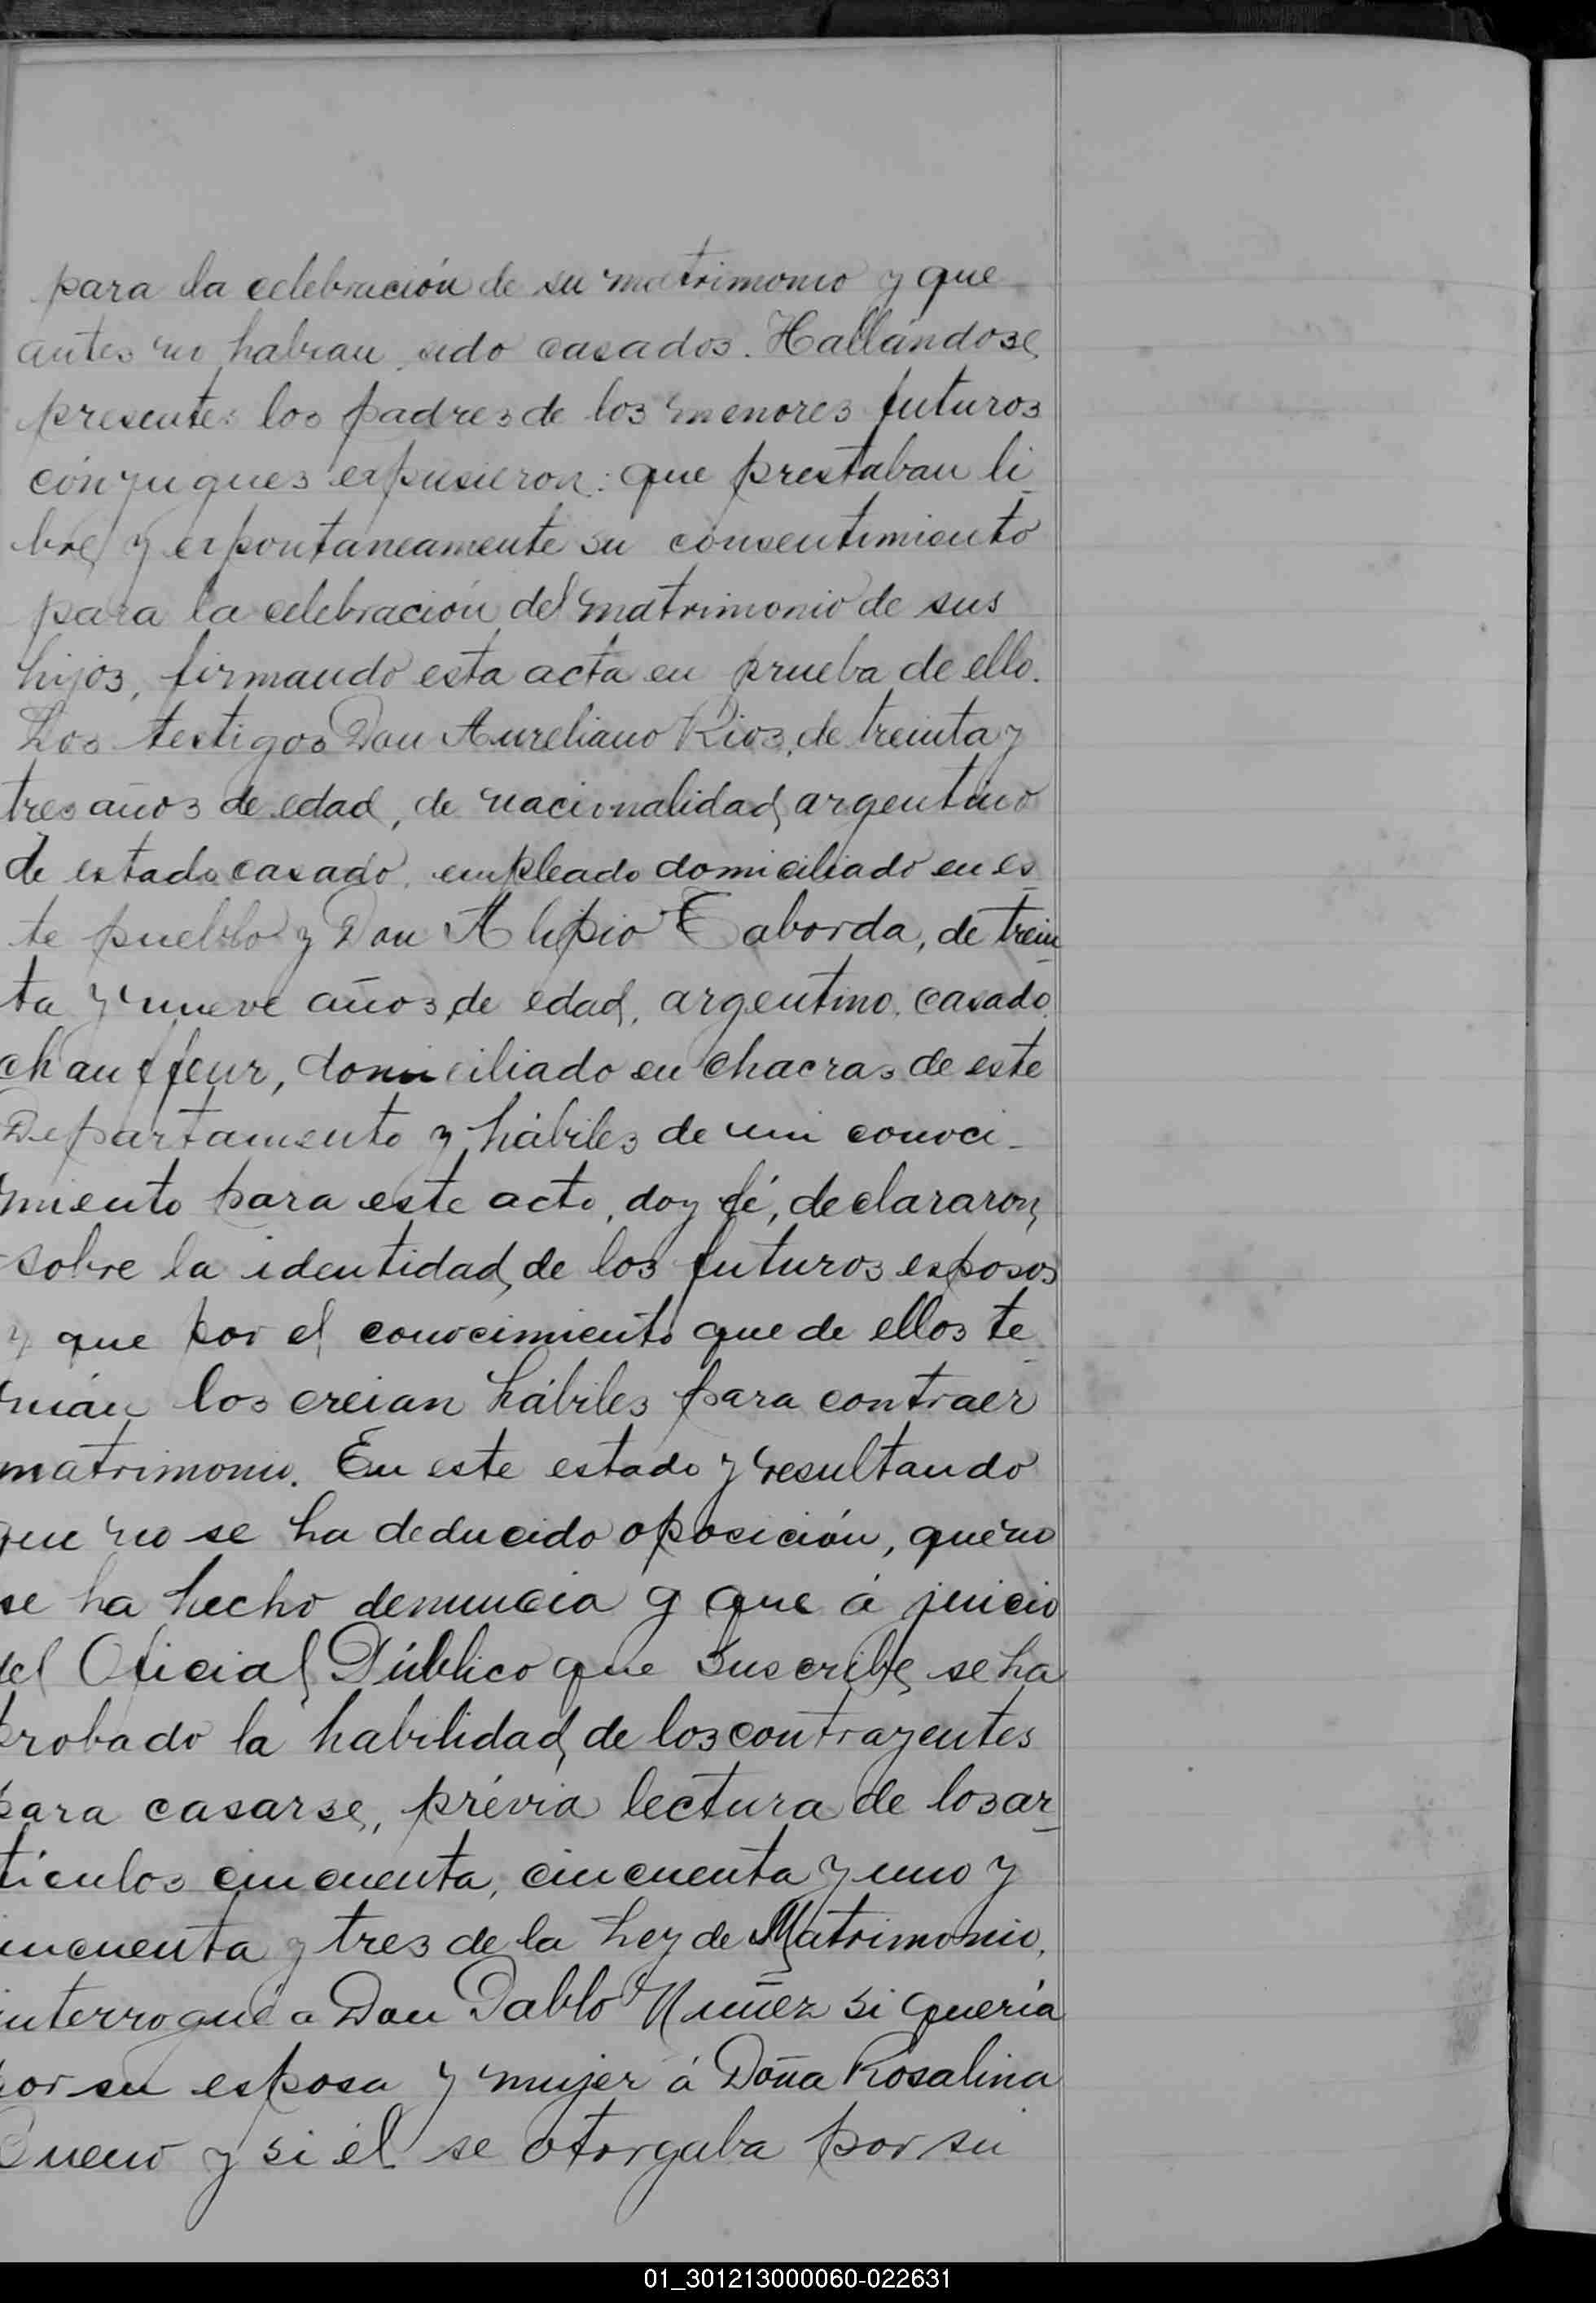 para la celebración de su matrimonio y que
antes no habian sido casados. Hallándose
presentes los padres de los menores futuros
cónyugues expusieron: que prestaban li
bre y expontaneamente su consentimiento
para la celebración del matrimonio de sus
hijos, firmando esta acta en prueba de ello.
Los testigos Don Aureliano Rios, de treinta y
tres años de edad, de nacionalidad argentino
de estado casado, empleado domiciliado en es
te pueblo y Don Alipio Taborda, de trein
ta y nueve años de edad, argentino, casado,
chauffeur, domiciliado en chacras de este
Departamento y hábiles de mi conoci-
miento para este acto, doy fé, declararon
sobre la identidad de los futuros esposos
y que por el conocimiento que de ellos te
nián los creian hábiles para contraer
matrimonio. En este estado y resultando
que no se ha deducido oposición, que no
se ha hecho denuncia y que á juicio
del Oficial Público que suscribe se ha
probado la habilidad de los contrayentes
para casarse, prévia lectura de los ar
tículos cincuenta, cincuenta y uno y
cincuenta y tres de la Ley de Matrimonio,
interrogué a Don Pablo Nuñez si quería
por su esposa y mujer á Doña Rosalina
y si él se otorgaba por su
01_301213000060-022631